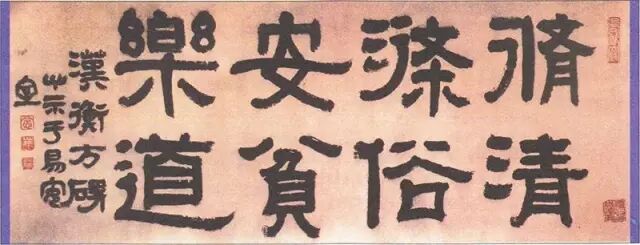 脩清
滌俗
安貧
樂道
漢衡方碑
示于易